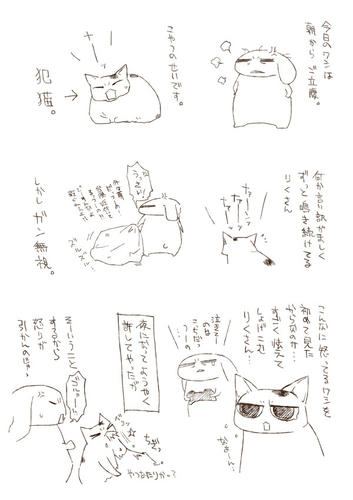 今日のワシは
朝から ご立腹。
こやつのせいです。
犯猫。
何か言い訳がましく
ずっと鳴き続けてる
りくさん
ナァー
ナァー
ナァーン
うっさい!
ズルズル
しかし ガン無視。
こんなに怒ってるワシを
初めて見た
からなのか…
すごく怯えて
しょげこむ
りくさん…
なぁーん…
泣きてー
のは
こっちだっ
つーの
夜になってようやく
許してやったが
そーいうこと
するから
怒りが
引かんのじゃっ
やつあたりかっ?